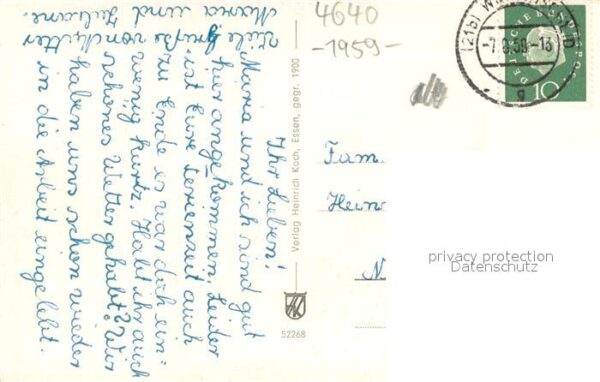 4640
-1959-
(21b) W
-7.8.59-13
g
DEUTSCHE BUNDESPOST
10
Ihr Lieben!
Maria und ich sind gut
hier angekommen. Leider
ist Eure Ferienzeit auch
zu Ende es war doch ein-
wenig kurtz. Habt ihr auch
schönes Wetter gehabt? Wir
haben uns schon wieder
in die Arbeit eingelebt.
Viele Grüße von
und
Verlag Heinrich Koch, Essen, gegr. 1900
HK
52268
Fam
Hein
N
privacy protection
Datenschutz